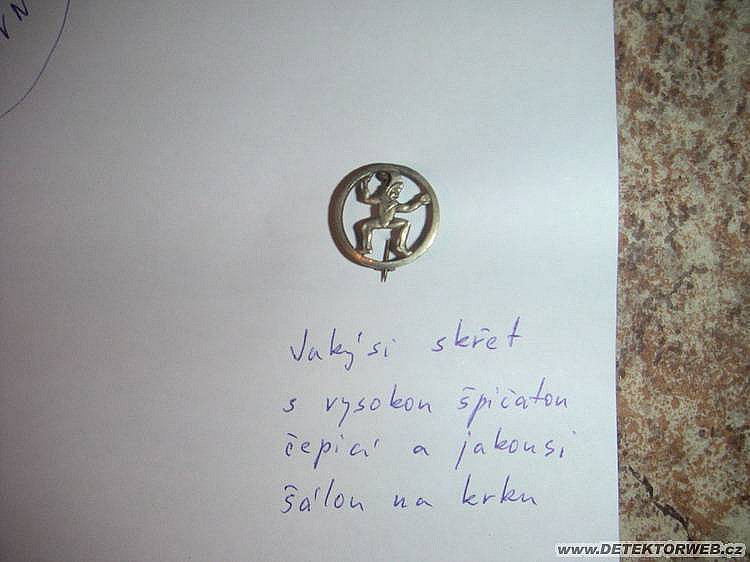 VN
Jakýsi skřet
s vysokou špičatou
čepicí a jakousi
šálou na krku
www.DETEKTORWEB.cz